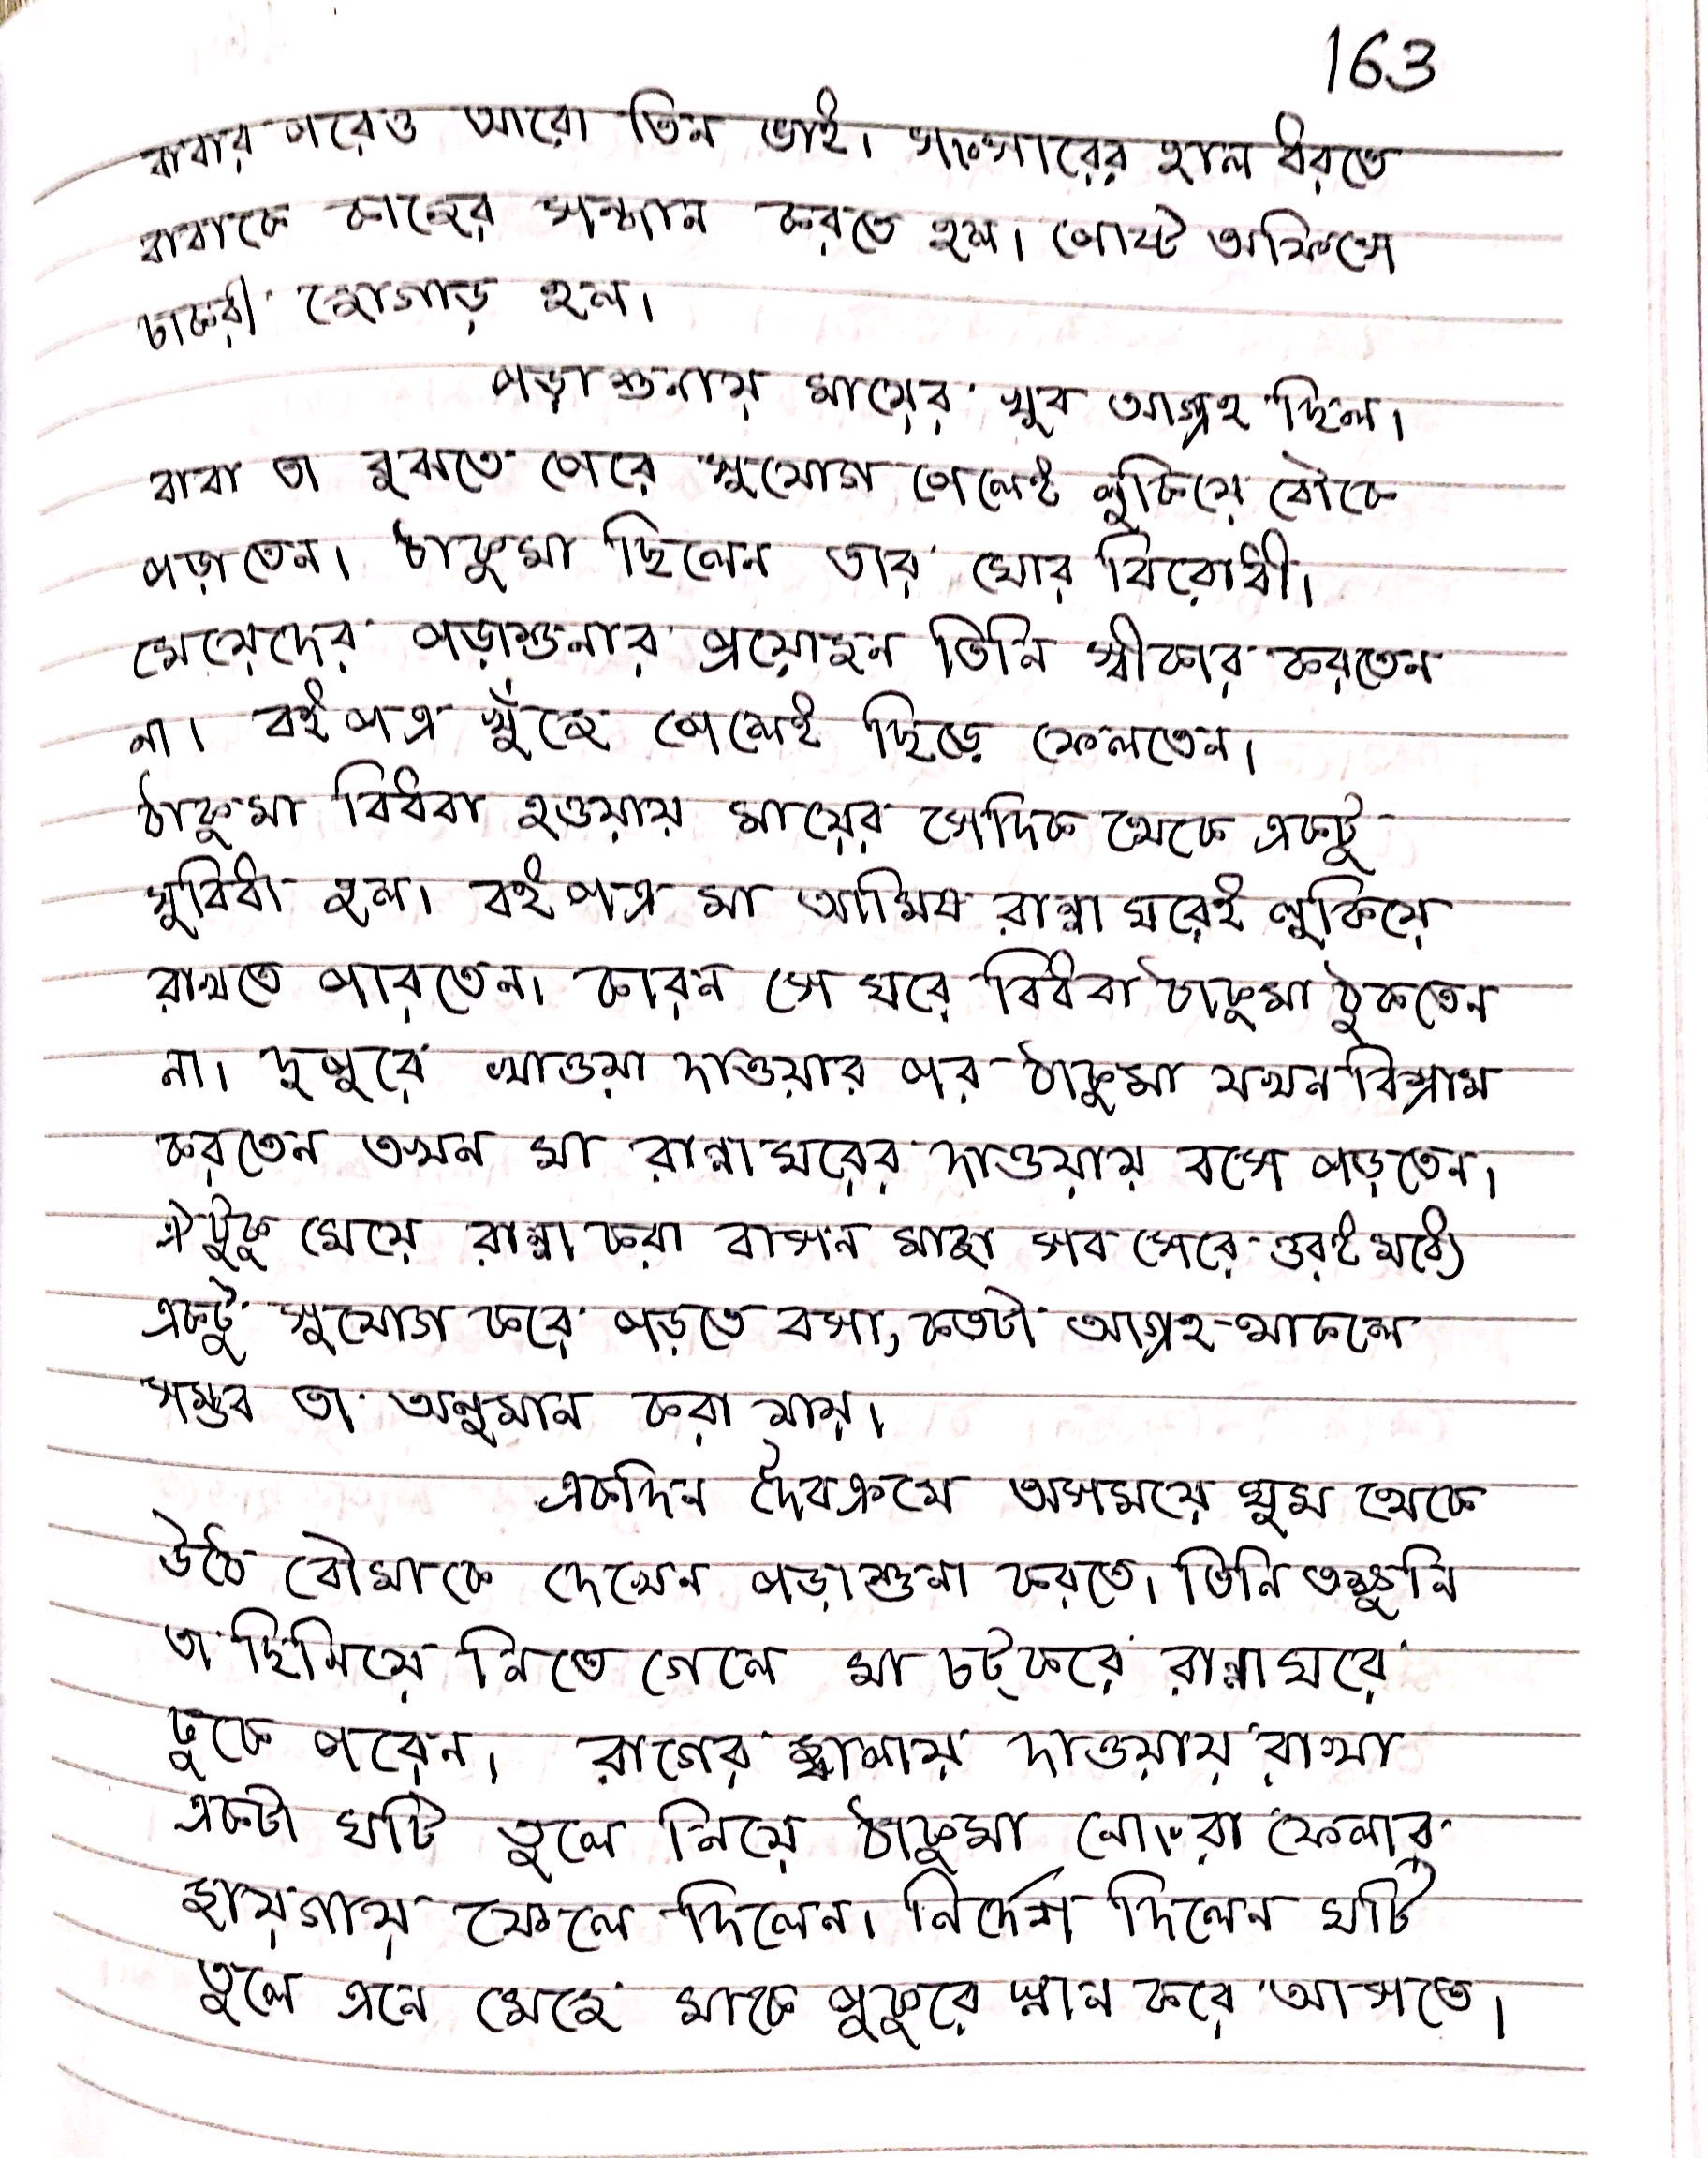 163
বাবার পরেও আরো তিন ভাই। সংসারের হাল ধরতে
বাবাকে কাজের সন্ধান করতে হল। পোষ্ট অফিসে
চাকরী জোগাড় হল।
পড়াশুনায় মায়ের খুব আগ্রহ ছিল।
বাবা তা বুঝতে পেরে সুযোগ পেলেই লুকিয়ে বৌকে
পড়াতেন। ঠাকুমা ছিলেন তার ঘোর বিরোধী।
মেয়েদের পড়াশুনার প্রয়োজন তিনি স্বীকার করতেন
না। বইপত্র খুঁজে পেলেই ছিড়ে ফেলতেন।
ঠাকুমা বিধবা হওয়ায় মায়ের সেদিক থেকে একটু
সুবিধা হল। বইপত্র মা আমিষ রান্নাঘরেই লুকিয়ে
রাখতে পারতেন। কারন সে ঘরে বিধবা ঠাকুমা ঢুকতেন
না। দুপুরে খাওয়া দাওয়ার পর ঠাকুমা যখন বিশ্রাম
করতেন তখন মা রান্নাঘরের দাওয়ায় বসে পড়তেন।
ঐটুকু মেয়ে রান্না করা বাসন মাজা সব সেরে ওরই মধ্যে
একটু সুযোগ করে পড়তে বসা, কতটা আগ্রহ থাকলে
সম্ভব তা অনুমান করা যায়।
একদিন দৈবক্রমে অসময়ে ঘুম থেকে
উঠে বৌমাকে দেখেন পড়াশুনা করতে। তিনি তক্ষুনি
তা ছিনিয়ে নিতে গেলে মা চট্ করে রান্নাঘরে
ঢুকে পরেন। রাগের জ্বালায় দাওয়ায় রাখা
একটা ঘটি তুলে নিয়ে ঠাকুমা নোংরা ফেলার
জায়গায় ফেলে দিলেন। নির্দেশ দিলেন ঘটি
তুলে এনে মেজে মাকে পুকুরে স্নান করে আসতে।